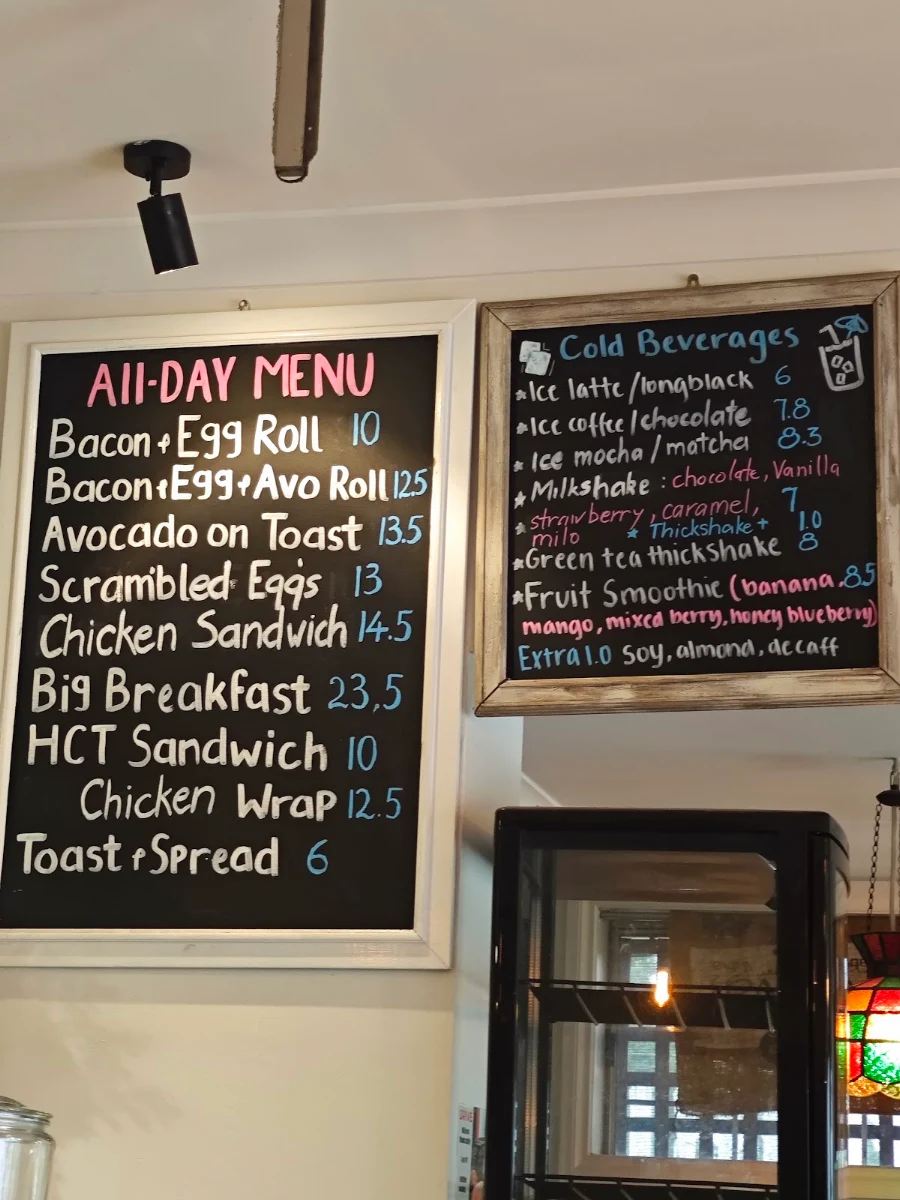 All-DAY MENU
Bacon + Egg Roll 10
Bacon + Egg + Avo Roll 12.5
Avocado on Toast 13.5
Scrambled Eggs 13
Chicken Sandwich 14.5
Big Breakfast 23,5
HCT Sandwich 10
Chicken Wrap 12.5
Toast + Spread 6
Cold Beverages
* Ice latte /longblack 6
* Ice coffee / chocolate 7.8
* Ice mocha / matcha 8.3
* Milkshake : chocolate, Vanilla
* strawberry, caramel, 7
milo * Thickshake + 1.0
* Green tea thickshake 8
* Fruit Smoothie (banana, 8.5
mango, mixed berry, honey blueberry)
Extra 1.0 soy, almond, decaff